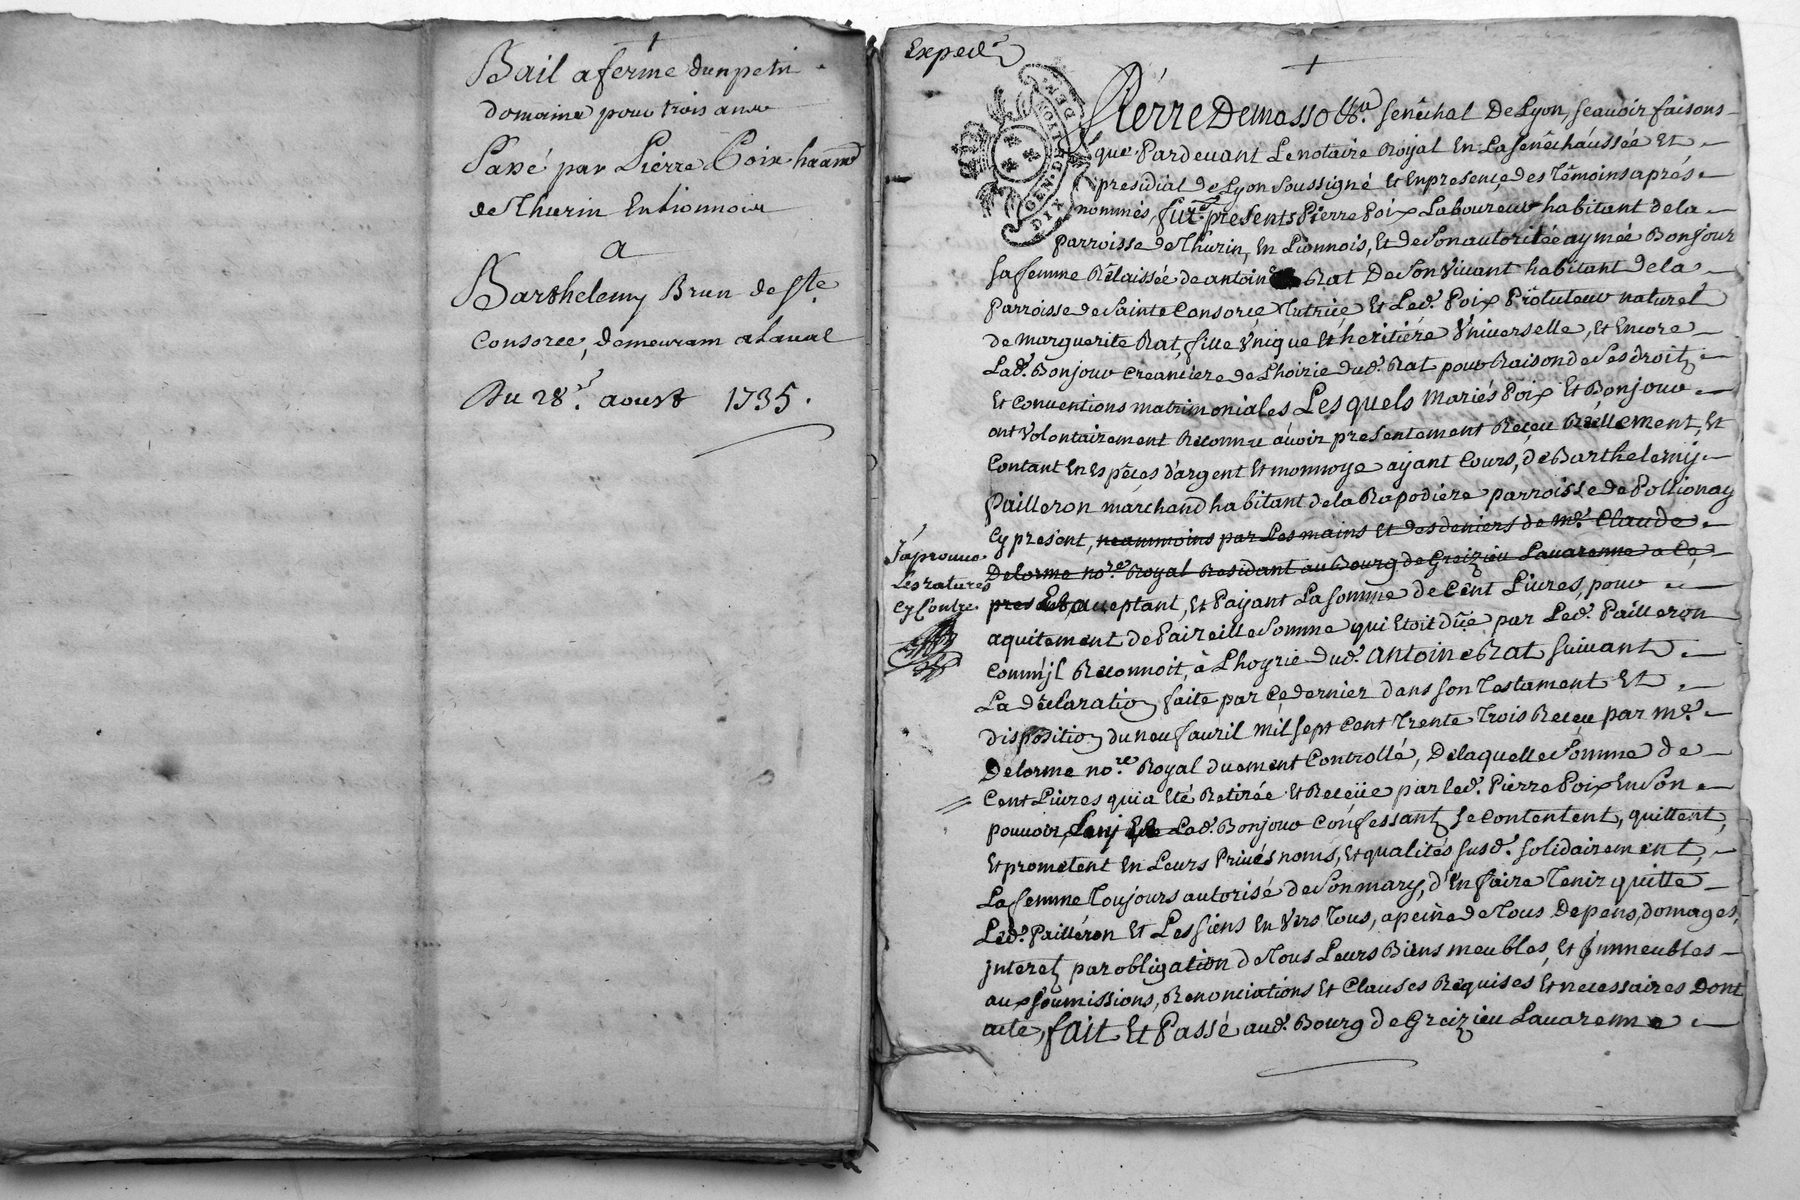 Bail a ferme dun petit
domaine pour trois annee
Passé par Pierre Poix haant
de Thurin en Lionnois
a
Barthelemy Brun de Ste
Consorce, demeurant a Laval
Du 28.e aoust 1735.
Exped.é
Pierre Demasso Ch.er senêchal De Lyon, scavoir faisons
que Pardevant Le notaire Royal En La Sénêcháussée Et
presidial de Lyon Soussigné Et En presence des Témoins aprés
nommés, furent presents Pierre Poix Laboureur habitant de la
parroisse de Thurin, En Lionnois, Et de Son autoritée aymée Bonjour
sa femme Rélaissée de antoine Rat De Son Vivant habitant de la
parroisse de Sainte Consorce Tutrice Et Led. Poix Protuteur naturel
de marguerite Rat, fille Vnique Et héritiére Vniverselle, Et Encore
Lad. Bonjour Creanciere de Lhoirie dud. Rat pour Raison de Ses droits
Et conventions matrimoniales Les quels mariés Poix Et Bonjour
ont volontairement Reconnu avoir presentement Reçeu Réellement, Et
Contant En Espêces d'argent Et monnoye ayant Cours, de Barthelemy
Pailleron marchand habitant de la Rapodiére parroisse de Pollionay
Cy présent, neammoins par Les mains Et des deniers de m.e Claude
Delorme no.re Royal Residant au Bourg de Greizieu Lavarenne a Ce
present, acceptant, Et Paijant La somme de Cent Livres, pour
aquitement de Paireille Somme qui Etoit dûe par Led. Pailleron
comm'jl Reconnoit, à Lhoyrie dud. Antoine Rat suivant
La déclaration faite par Ce dernier dans son Testament Et
disposition du neuf avril mil sept Cent Trente Trois Receu par m.e
Delorme no.re Royal duement Controllé, De laquelle Sómme de
Cent Livres qui a Eté Retirée Et Receüe par led. Pierre Poix En Son
pouvoir, Luy Et Lad. Bonjour Conféssants se Contentent, quittent,
Et prometent En Leurs Privés noms, Et qualités susd. solidairement,
La femme Toujours autorisé de Son mary, d'En faire Tenir quitte
Led. Pailléron Et Les siens En vers Tous, a peine de Tous Depens, domages,
jnterets, par obligation de Tous Leurs Biens meubles, Et jmmeubles
aux soumissions, Renonciations Et Clauses Requises Et necessaires Dont
acte, fait Et Passé aud. Bourg de Greizieu Lavarenne
J'aprouve
Les ratures
Cy Contre
GEN. DE LYON
DIX DEN.